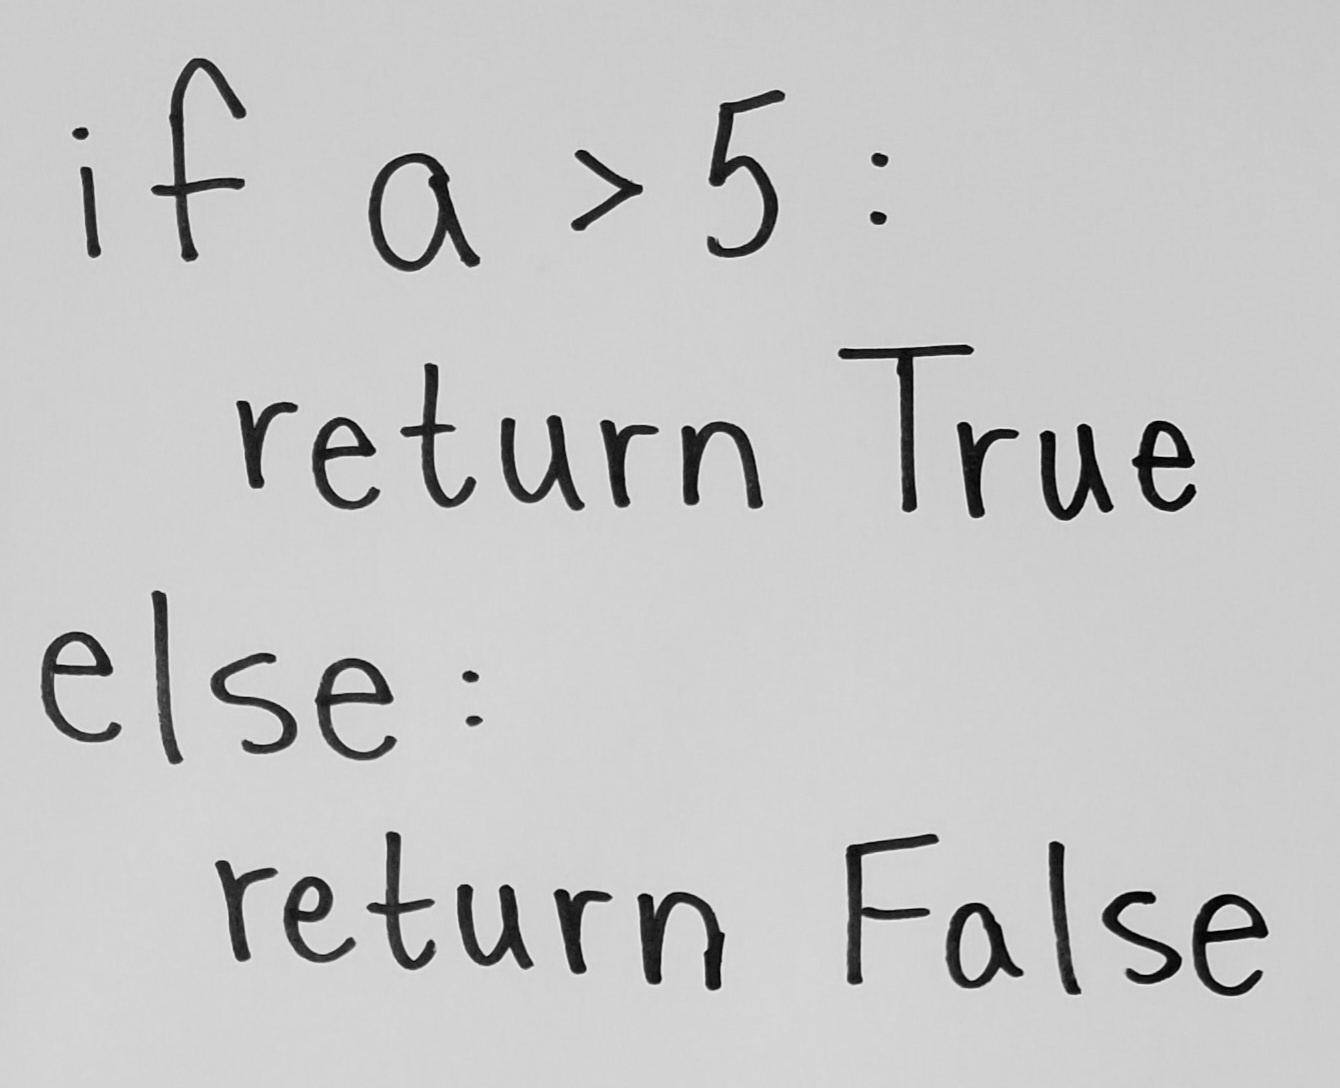 if a > 5 :
    return True
else :
    return False